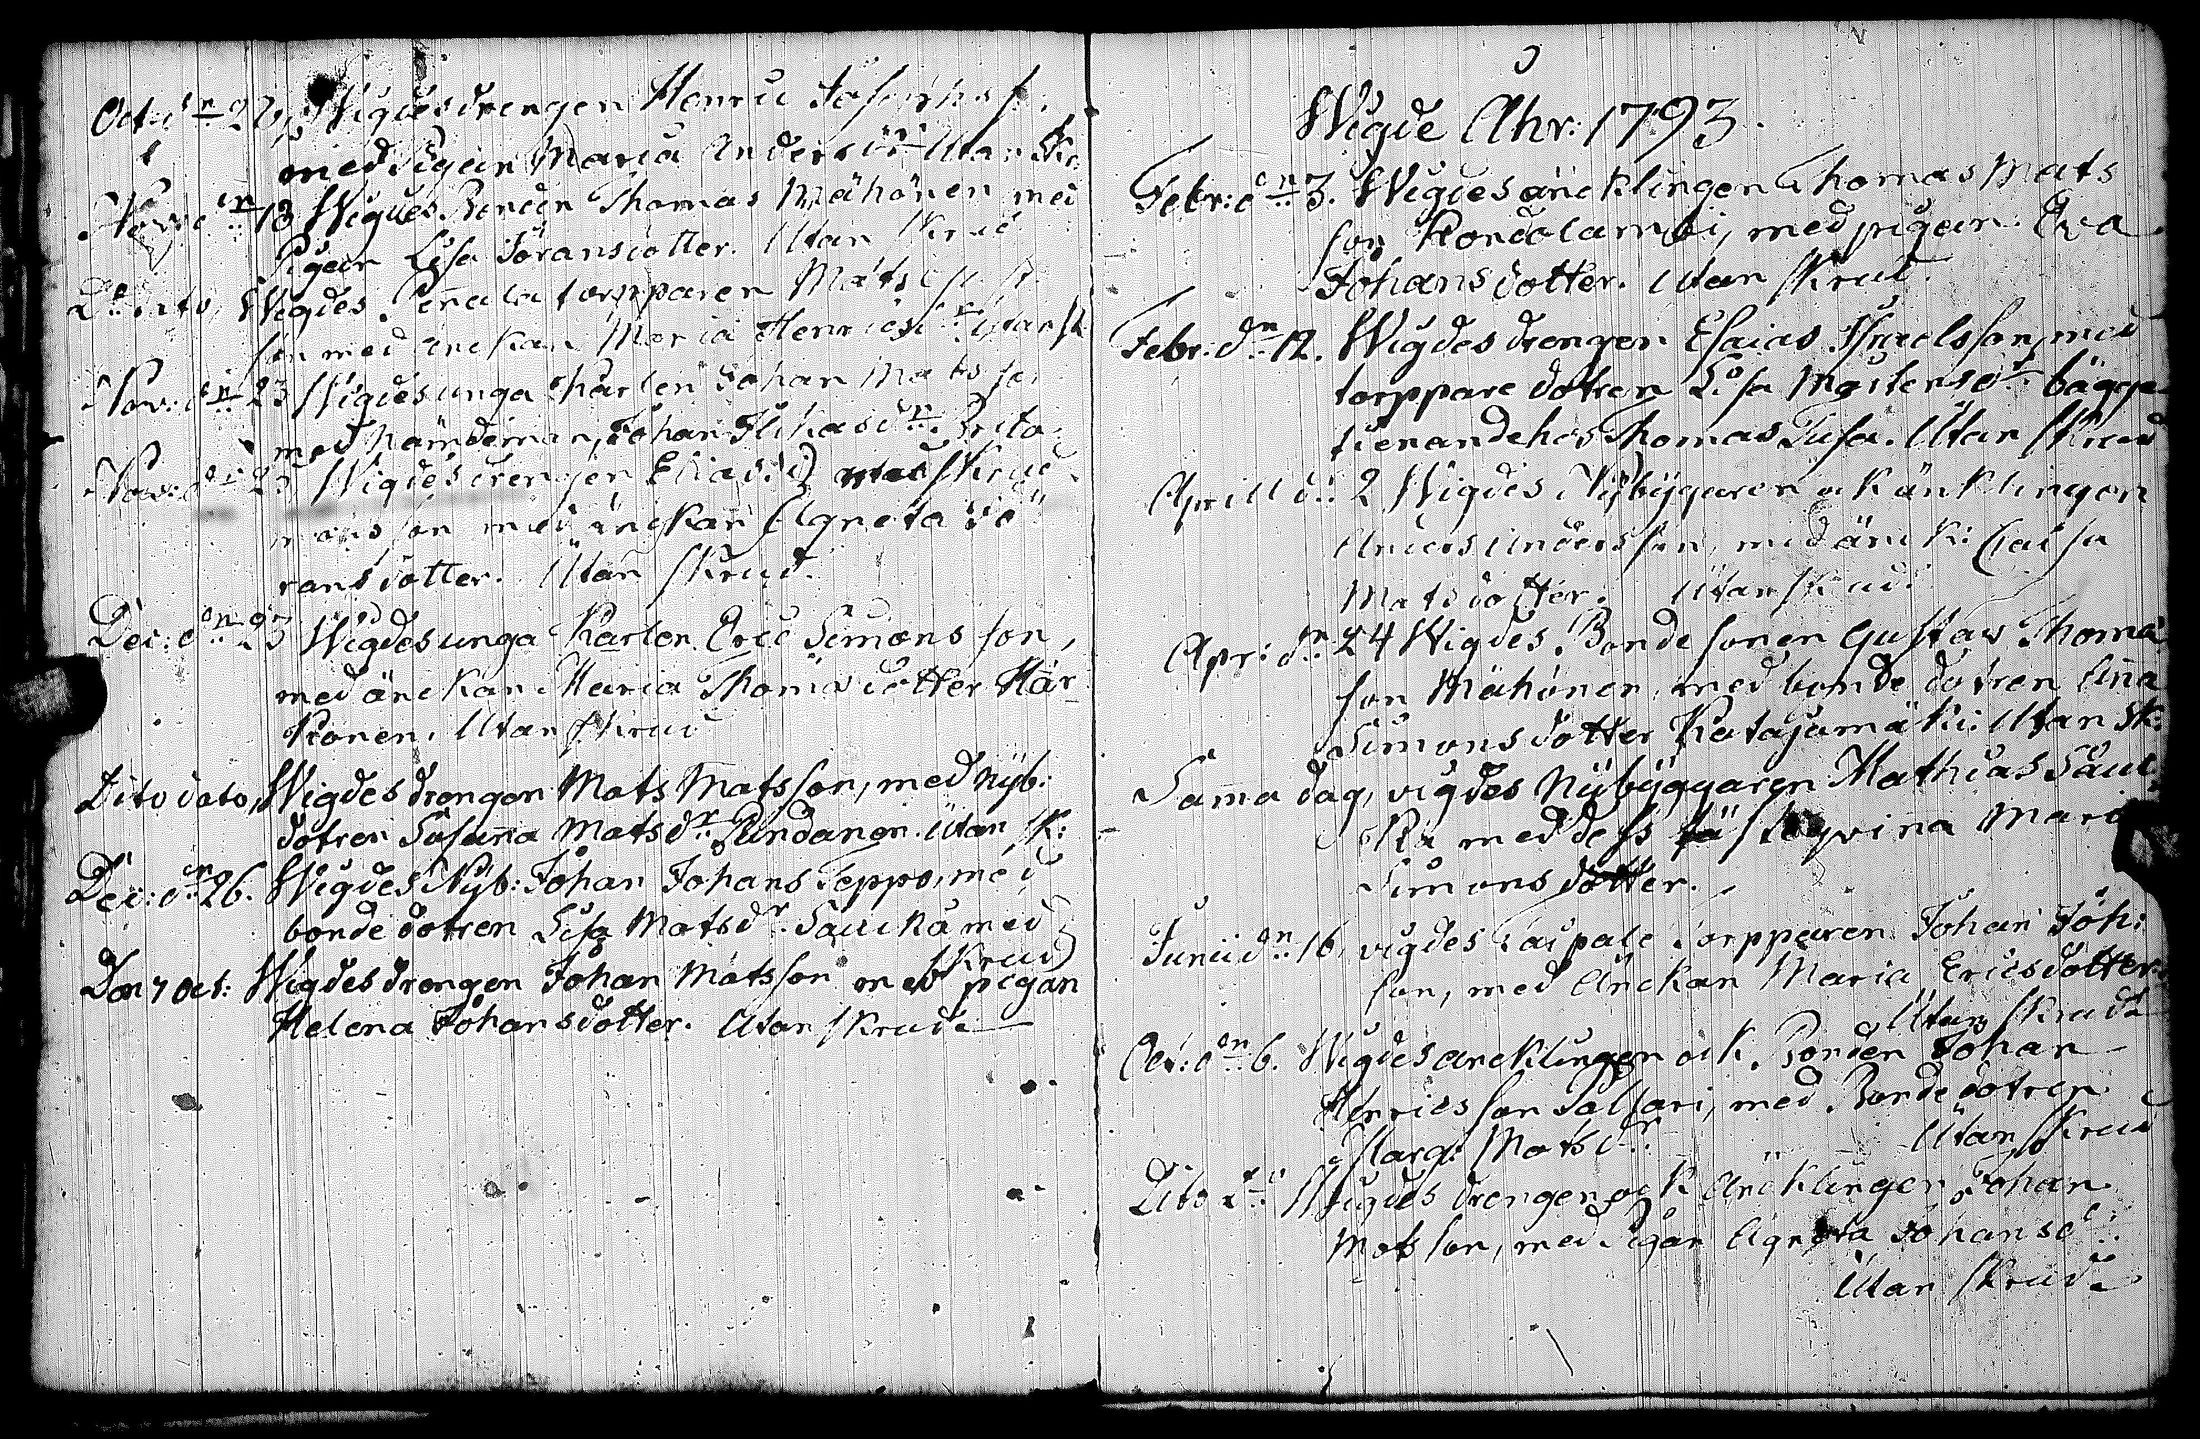 Oct: dn 2 Wigdes drengen Henric
med Pigan Maria Andersdr Utan Sk:
Nov: dn 13 Wigdes Bonden Thomas Mähönen med
Pigan Lisa Jöransdotter. Utan skrud
Dn dito, Wigdes torpparen Mats
son med änckan Maria Henricsdr Utan sk
Nov: dn 23 Wigdes unga Karlen Johan Mats son
med nämdeman, Johan dn Brita
Nov: dn 23 Wigdes drengen Elias Si) med Skrud
mons son med änckan Agneta Jö
ransdotter. Utan skrud.
Dec: dn 23 Wigdes unga Karlen Eric Simons son,
med änckan Maria Thomä dotter Här
konen. Utan skrud
Dito dato, Wigdes drengen Mats Matsson, med nÿb:
dotren Susanna Matsdr Pundanen. Utan sk:
Dec: dn 26. Wigdes Nÿb: Johan Johans Seppo, med
bonde dotren Lisa Matsdr Saucka med
skrud
Den 7 Oct: Wigdes drengen Johan Matsson med pigan
Helena Johansdotter. Utan skrud
Wigde Åhr: 1793.
Febr: dn 3. Wigdes äncklingen Thomas Mats
son Kondolambi, med pigan Eva
Johansdotter. Utan skrud.
Febr. dn 12. Wigdes drengen Esaias Israelsson, med
torppare dotren Lisa Mortensdr bägge
tienande hos Thomas Tufa. Utan skrud
Aprill d: 2 Wigdes Nÿbÿgaren ock änklingen
Anders Andersson, med änck: Caisa
Matsdotter. Utan skrud.
Apr: dn 24 Wigdes Bonde sonen Gustav Thomä
son Mähönen, med bonde dotren Anna
Simonsdotter Katajamäki. Utan sk:
Samma dag, vigdes Nÿbÿggaren Mathias Sauc
ka med dess fästeqvinna Maria
Simonsdotter.
Junii dn 16, vigdes Taipale Torpparen Johan Joh:
son, med Änckan Maria Ericsdotter
Utan skrud
Oct: dn 6. Wigdes äncklingen ock Bonden Johan
Henricsson Palsari, med Bonde dotren
Marg: Matsdr. Utan skrud
Dito Wigdes drengen ock Äncklingen Johan
Matsson, med Pigan Agneta Johansd:
Utan skrud